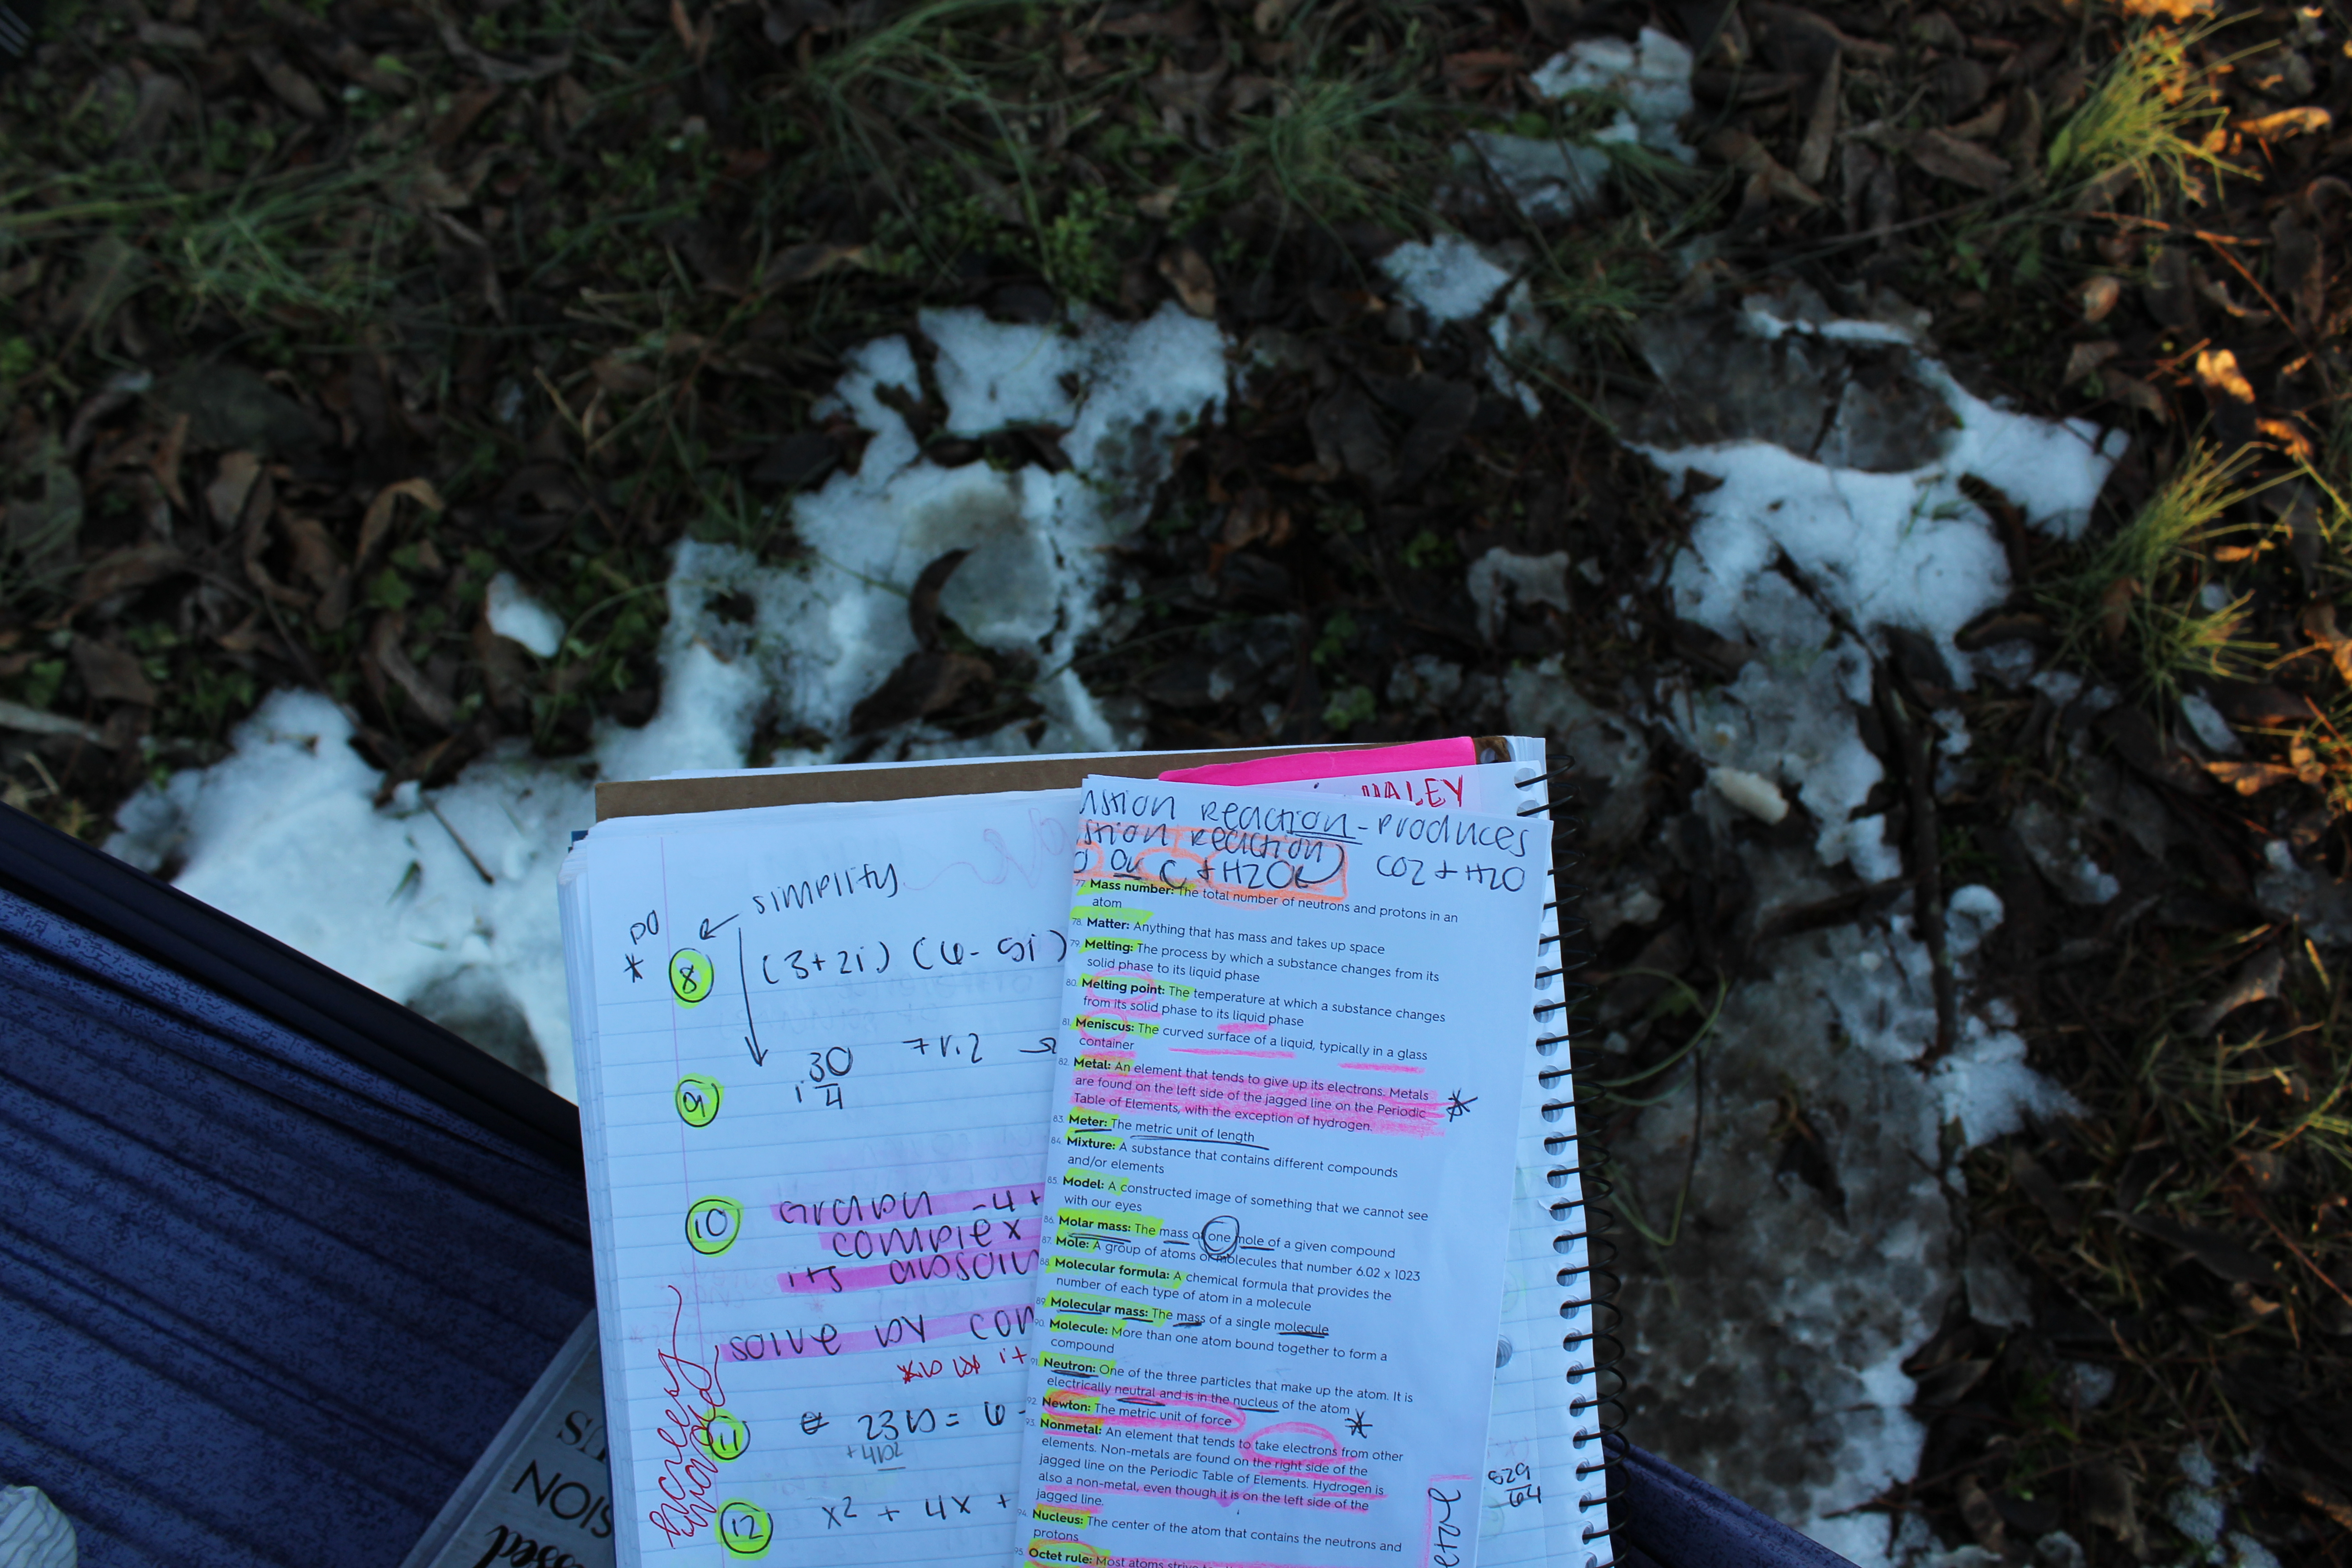 HALEY
reaction - produces
reaction CO2 + H2O
C + H2O
77. Mass number: The total number of neutrons and protons in an
atom
78. Matter: Anything that has mass and takes up space
79. Melting: The process by which a substance changes from its
solid phase to its liquid phase
80. Melting point: The temperature at which a substance changes
from its solid phase to its liquid phase
81. Meniscus: The curved surface of a liquid, typically in a glass
container
82. Metal: An element that tends to give up its electrons. Metals
are found on the left side of the jagged line on the Periodic
Table of Elements, with the exception of hydrogen.
83. Meter: The metric unit of length
84. Mixture: A substance that contains different compounds
and/or elements
85. Model: A constructed image of something that we cannot see
with our eyes
86. Molar mass: The mass of one mole of a given compound
87. Mole: A group of atoms or molecules that number 6.02 x 1023
88. Molecular formula: A chemical formula that provides the
number of each type of atom in a molecule
89. Molecular mass: The mass of a single molecule
90. Molecule: More than one atom bound together to form a
compound
91. Neutron: One of the three particles that make up the atom. It is
electrically neutral and is in the nucleus of the atom
92. Newton: The metric unit of force
93. Nonmetal: An element that tends to take electrons from other
elements. Non-metals are found on the right side of the
jagged line on the Periodic Table of Elements. Hydrogen is
also a non-metal, even though it is on the left side of the
jagged line.
94. Nucleus: The center of the atom that contains the neutrons and
protons
95. Octet rule: Most atoms
simplify
8 (3+2i) (6-5i)
9 i 30
4
7 r.2
10 Graph -4 +
complex
its
solve by
11 23b = 6 -
+4b2
12 x2 + 4x +
529
64